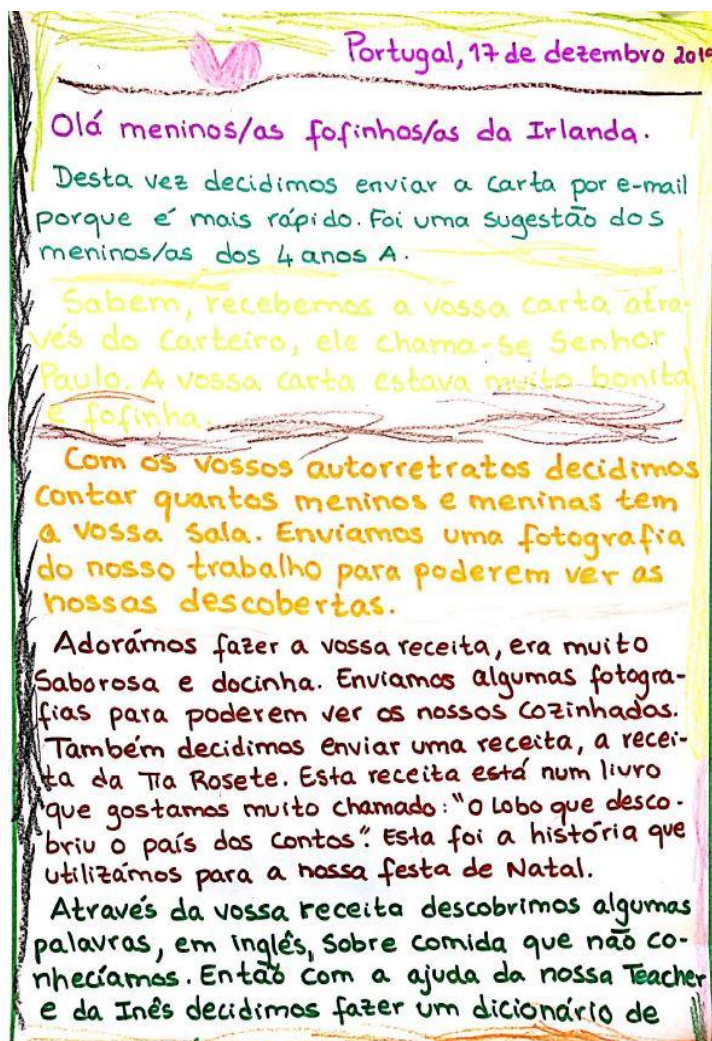 Portugal, 17 de dezembro 2019
Olá meninos/as fofinhos/as da Irlanda.
Desta vez decidimos enviar a carta por e-mail
porque é mais rápido. Foi uma sugestão dos
meninos/as dos 4 anos A.
Sabem, recebemos a vossa carta atra-
vés do Carteiro, ele chama-se Senhor
Paulo. A vossa carta estava muito bonita
e fofinha.
Com os vossos autorretratos decidimos
contar quantos meninos e meninas tem
a vossa sala. Enviamos uma fotografia
do nosso trabalho para poderem ver as
nossas descobertas.
Adorámos fazer a vossa receita, era muito
saborosa e docinha. Enviamos algumas fotogra-
fias para poderem ver os nossos cozinhados.
Também decidimos enviar uma receita, a recei-
ta da Tia Rosete. Esta receita está num livro
que gostamos muito chamado: "O Lobo que desco-
briu o país dos contos". Esta foi a história que
utilizámos para a nossa festa de Natal.
Através da vossa receita descobrimos algumas
palavras, em inglês, sobre comida que não co-
nhecíamos. Então com a ajuda da nossa Teacher
e da Inês decidimos fazer um dicionário de